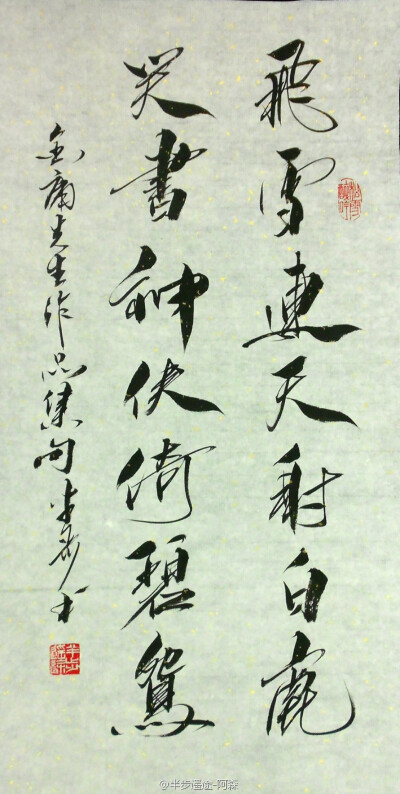 飛雪連天射白鹿
笑書神侠倚碧鴛
金庸先生作品集句 半步书
@半步遥途-阿森